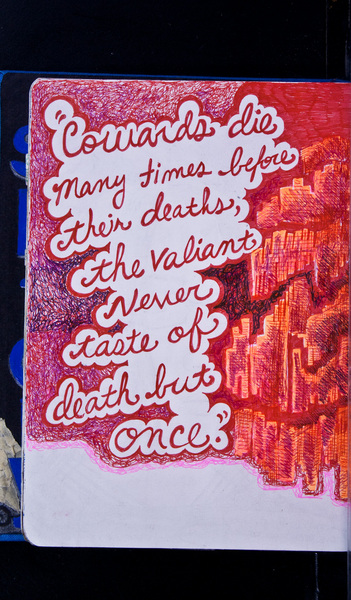 "Cowards die
many times before
their deaths;
the valiant
Never
taste of
death but
once."